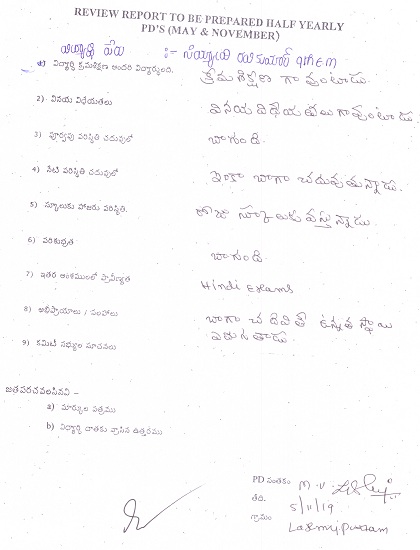 REVIEW REPORT TO BE PREPARED HALF YEARLY
PD'S (MAY & NOVEMBER)
విద్యార్థి పేరు :-
1) విద్యార్థి క్రమశిక్షణ అందరి విద్యార్థులతో. క్రమశిక్షణ గా వుంటాడు.
2) వినయ విధేయతలు వినయ విధేయతలు గా వుంటాడు.
3) పూర్వపు పరిస్థితి చదువులో బాగుంది.
4) నేటి పరిస్థితి చదువులో ఇంకా బాగా చదువుతున్నాడు.
5) స్కూలుకు హాజరు పరిస్థితి. రోజు స్కూలుకు వస్తున్నాడు.
6) పరిశుభ్రత బాగుంది.
7) ఇతర అంశములలో ప్రావీణ్యత Hindi Exams
8) అభిప్రాయాలు / సలహాలు బాగా చదివితే ఉన్నత స్థాయి
9) కమిటీ సభ్యుల సూచనలు
జతపరచవలసినవి –
a) మార్కుల పత్రము
b) విద్యార్థి దాతకు వ్రాసిన ఉత్తరము
PD సంతకం M.V.
తేది. 5/11/19
గ్రామం Laxmipuram